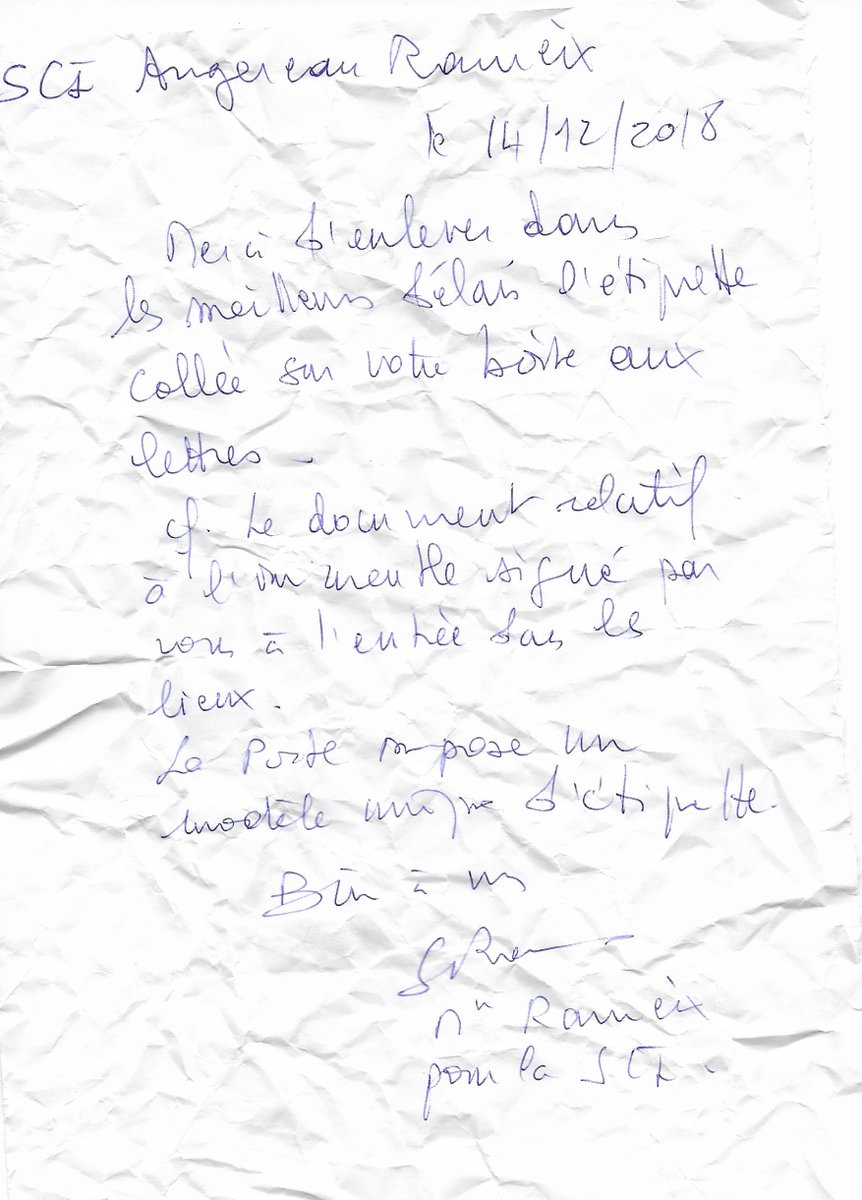 SCI Angereau Rameix
le 14/12/2018
Merci d'enlever dans
les meilleurs délais l'étiquette
collée sur votre boîte aux
lettres -
cf. Le document relatif
à l'immeuble signé par
vous à l'entrée dans les
lieux.
La Poste impose un
modèle unique d'étiquette.
Bien à vous
Rameix
pour la SCI.